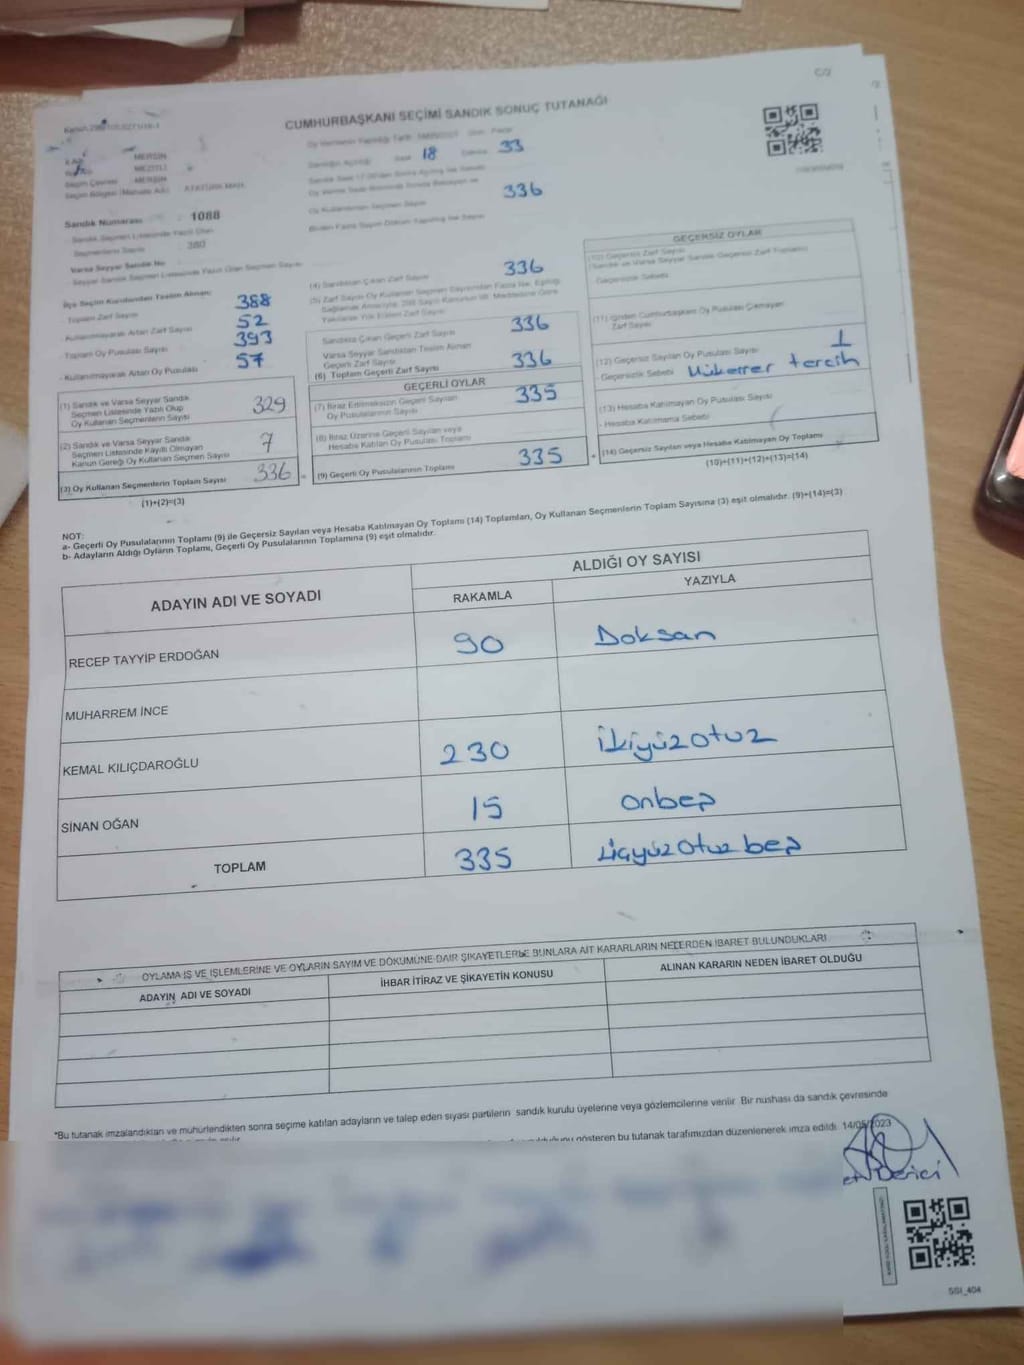 C/2
CUMHURBAŞKANI SEÇİMİ SANDIK SONUÇ TUTANAĞI
İli MERSİN
MEZİTLİ
Seçim Çevresi : MERSİN
Seçim Bölgesi (Mahalle Adı) : ATATÜRK MAH.
Sandık Numarası : 1088
Sandık Seçmen Listesinde Yazılı Olan
Seçmenlerin Sayısı : 380
Varsa Seyyar Sandık No
Seyyar Sandık Seçmen Listesinde Yazılı Olan Seçmen Sayısı
18 33
336
Oy Kullanılmadan Seçmen Sayısı
İlçe Seçim Kurulundan Teslim Alınan;
- Toplam Zarf Sayısı 388
- Kullanılmayarak Artan Zarf Sayısı 52
- Toplam Oy Pusulası Sayısı 393
- Kullanılmayarak Artan Oy Pusulası 57
(1) Sandık ve Varsa Seyyar Sandık
Seçmen Listesinde Yazılı Olup
Oy Kullanan Seçmenlerin Sayısı 329
(2) Sandık ve Varsa Seyyar Sandık
Seçmen Listesinde Kayıtlı Olmayan
Kanun Gereği Oy Kullanan Seçmen Sayısı 7
(3) Oy Kullanan Seçmenlerin Toplam Sayısı 336
(1)+(2)=(3)
(4) Sandıktan Çıkan Zarf Sayısı 336
(5) Zarf Sayısı Oy Kullanan Seçmen Sayısından Fazla İse, Eşitliği
Sağlamak Amacıyla, 298 Sayılı Kanunun 98. Maddesine Göre
Yakılarak Yok Edilen Zarf Sayısı
Sandıkta Çıkan Geçerli Zarf Sayısı 336
Varsa Seyyar Sandıktan Teslim Alınan
Geçerli Zarf Sayısı
(6) Toplam Geçerli Zarf Sayısı 336
GEÇERLİ OYLAR
(7) İtiraz Edilmeksizin Geçerli Sayılan
Oy Pusulalarının Sayısı 335
(8) İtiraz Üzerine Geçerli Sayılan veya
Hesaba Katılan Oy Pusulası Toplamı
(9) Geçerli Oy Pusulalarının Toplamı 335
GEÇERSİZ OYLAR
(10) Geçersiz Zarf Sayısı
(Sandık ve Varsa Seyyar Sandık Geçersiz Zarf Toplamı)
- Geçersizlik Sebebi
(11) İçinden Cumhurbaşkanı Oy Pusulası Çıkmayan
Zarf Sayısı
(12) Geçersiz Sayılan Oy Pusulası Sayısı 1
- Geçersizlik Sebebi Mükerrer tercih
(13) Hesaba Katılmayan Oy Pusulası Sayısı
- Hesaba Katılmama Sebebi
(14) Geçersiz Sayılan veya Hesaba Katılmayan Oy Toplamı
(10)+(11)+(12)+(13)=(14)
NOT:
a- Geçerli Oy Pusulalarının Toplamı (9) ile Geçersiz Sayılan veya Hesaba Katılmayan Oy Toplamı (14) Toplamları, Oy Kullanan Seçmenlerin Toplam Sayısına (3) eşit olmalıdır. (9)+(14)=(3)
b- Adayların Aldığı Oyların Toplamı, Geçerli Oy Pusulalarının Toplamına (9) eşit olmalıdır.
ADAYIN ADI VE SOYADI ALDIĞI OY SAYISI
RAKAMLA YAZIYLA
RECEP TAYYİP ERDOĞAN 90 Doksan
MUHARREM İNCE
KEMAL KILIÇDAROĞLU 230 İkiyüzotuz
SİNAN OĞAN 15 onbeş
TOPLAM 335 üçyüzotuzbeş
OYLAMA İŞ VE İŞLEMLERİNE VE OYLARIN SAYIM VE DÖKÜMÜNE DAİR ŞİKAYETLERLE BUNLARA AİT KARARLARIN NELERDEN İBARET BULUNDUKLARI
ADAYIN ADI VE SOYADI İHBAR İTİRAZ VE ŞİKAYETİN KONUSU ALINAN KARARIN NEDEN İBARET OLDUĞU
*Bu tutanak imzalandıktan ve mühürlendikten sonra seçime katılan adayların ve talep eden siyasi partilerin sandık kurulu üyelerine veya gözlemcilerine verilir. Bir nüshası da sandık çevresinde
gösteren bu tutanak tarafımızdan düzenlenerek imza edildi. 14/05/2023
SSI_404